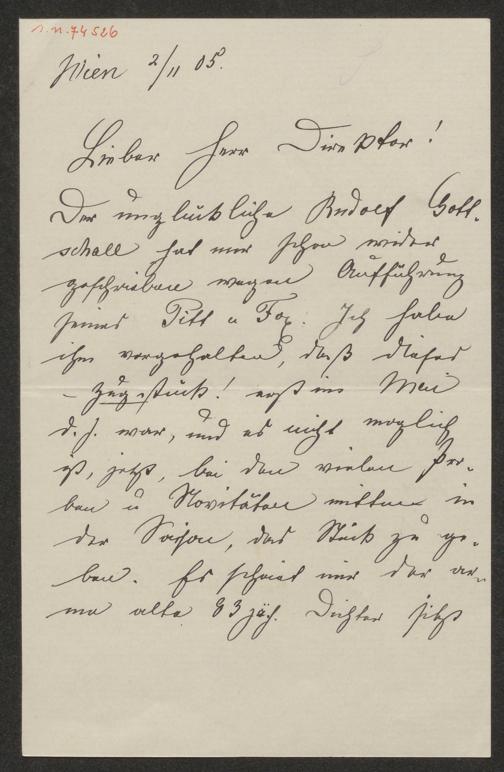 I.N. 74526
Wien 2/11 05.
Lieber Herr Direktor!
Der unglückliche Rudolf Gott-
schall hat mir schon wieder
geschrieben wegen Aufführung
seines Pitt u Fox. Ich habe
ihm vorgehalten, daß dieses
– Zugstück! erst im Mai
d. J. war, und es nicht möglich
ist, jetzt, bei den vielen Pro-
ben u Novitäten mitten in
der Saison, das Stück zu ge-
ben. Es scheint mir der ar-
me alte 83 jäh. Dichter sitzt